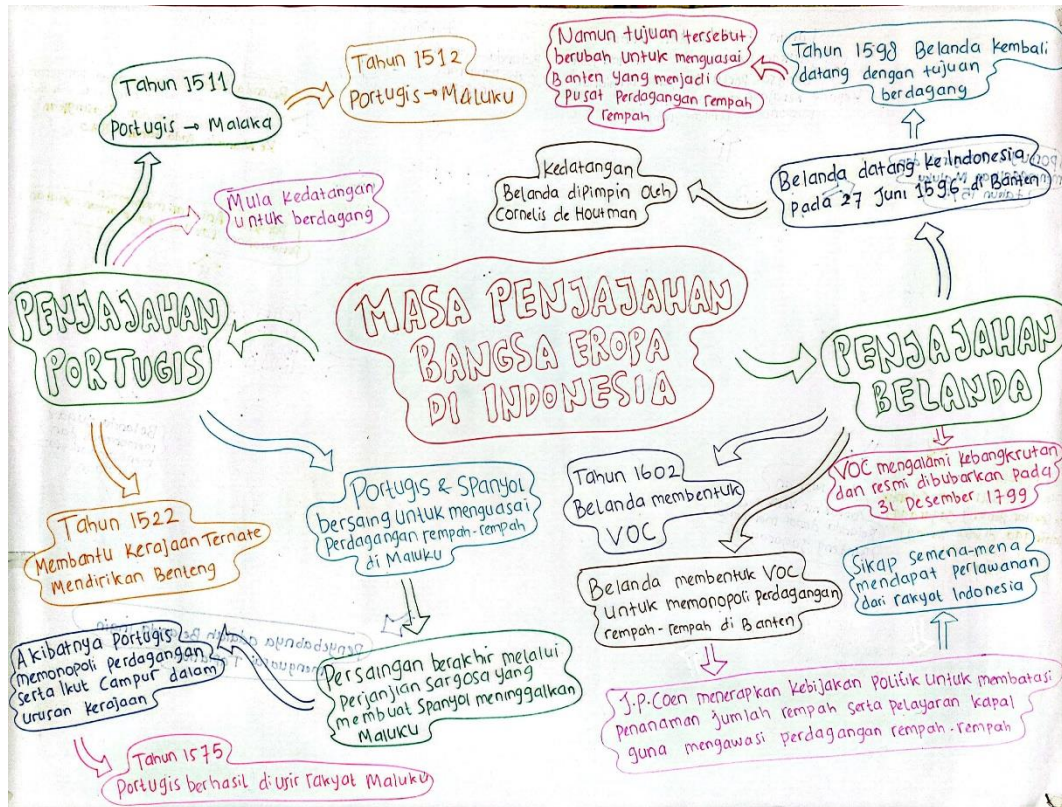 MASA PENJAJAHAN
BANGSA EROPA
DI INDONESIA
PENJAJAHAN
PORTUGIS
Tahun 1511
Portugis → Malaka
Tahun 1512
Portugis → Maluku
Mula kedatangan
untuk berdagang
Tahun 1522
Membantu kerajaan Ternate
Mendirikan Benteng
Portugis & Spanyol
bersaing untuk menguasai
Perdagangan rempah-rempah
di Maluku
Persaingan berakhir melalui
Perjanjian Sargosa yang
membuat Spanyol meninggalkan
Maluku
Akibatnya Portugis
memonopoli Perdagangan
serta Ikut Campur dalam
ururan kerajaan
Tahun 1575
Portugis berhasil diusir rakyat Maluku
PENJAJAHAN
BELANDA
Belanda datang ke Indonesia
Pada 27 Juni 1596 di Banten
Kedatangan
Belanda dipimpin Oleh
Cornelis de Houtman
Tahun 1598 Belanda kembali
datang dengan tujuan
berdagang
Namun tujuan tersebut
berubah untuk menguasai
Banten yang menjadi
pusat Perdagangan rempah
rempah
Tahun 1602
Belanda membentuk
VOC
Belanda membentuk VOC
untuk memonopoli perdagangan
rempah-rempah di Banten
J.P.Coen menerapkan kebijakan politik untuk membatasi
penanaman jumlah rempah serta pelayaran kapal
guna mengawasi perdagangan rempah-rempah
Sikap semena-mena
mendapat perlawanan
dari rakyat Indonesia
VOC mengalami kebangkrutan
dan resmi dibubarkan pada
31 Desember 1799